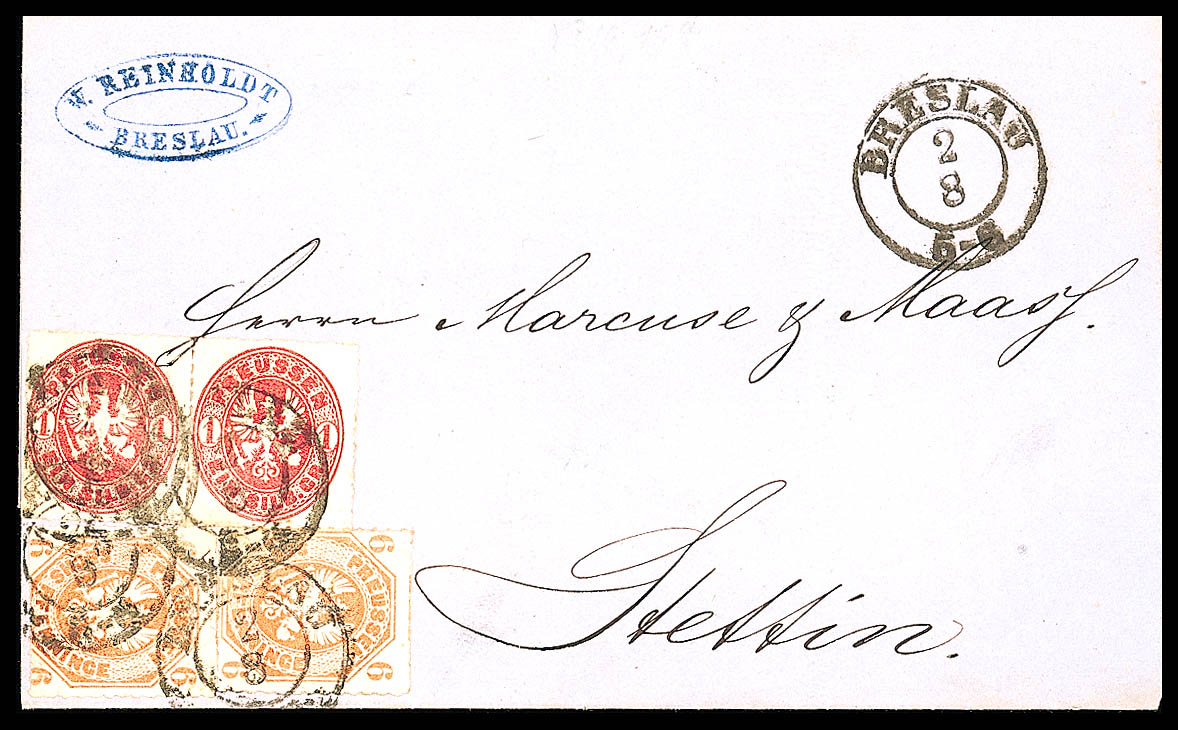 W. REINHOLDT
BRESLAU.
BRESLAU
2
8
5-6
Herrn Marcuse & Maass.
Stettin.
PREUSSEN
1 1
EIN SILB.GR.
PREUSSEN
1 1
EIN SILB.GR.
6
PREUSSEN
PFENNINGE
6
8
6
PREUSSEN
PFENNINGE
6
2
8